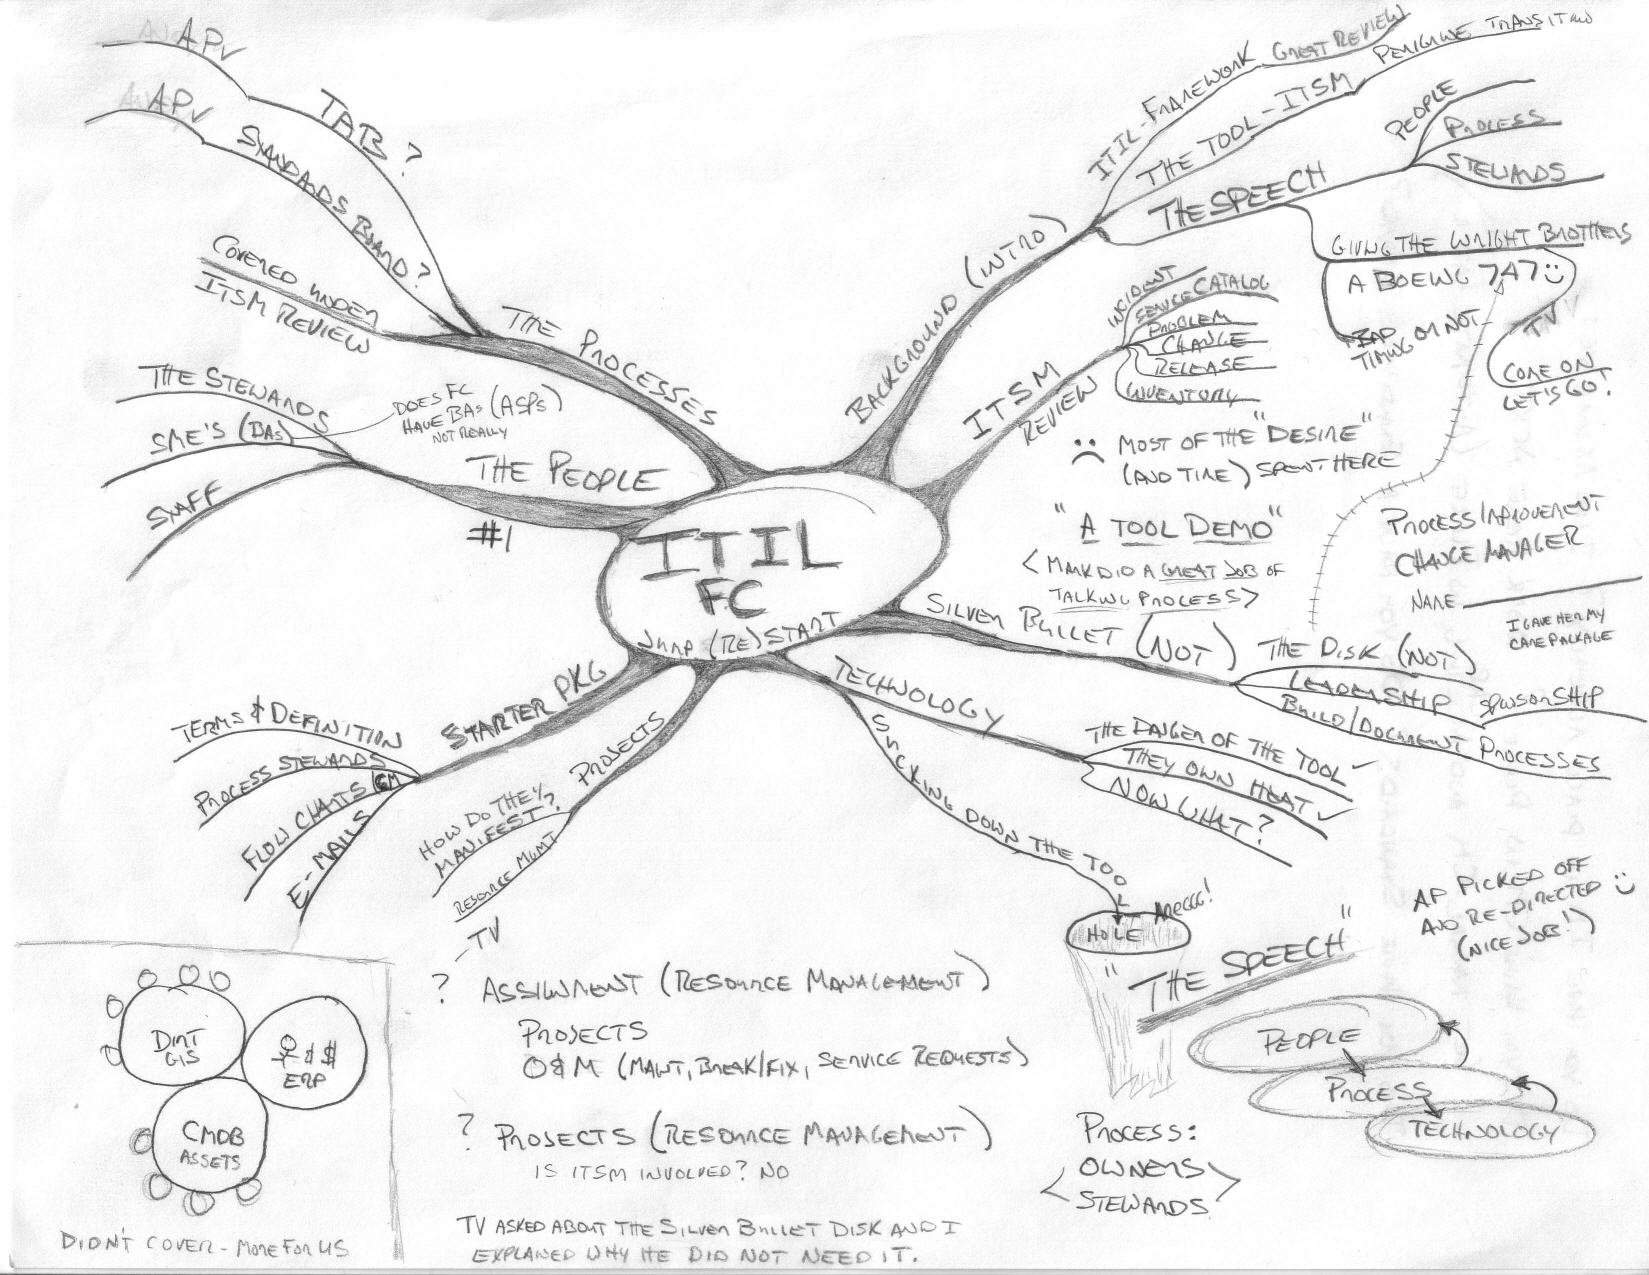 APV
APV
TAB?
STANDARDS BOARD?
COVERED UNDER
ITSM REVIEW
THE PROCESSES
THE STEWARDS
SME'S (BAs)
DOES FC
HAVE BAs (ASPs)
NOT REALLY
STAFF
THE PEOPLE
#1
BACKGROUND (INTRO)
ITIL-FRAMEWORK GREAT REVIEW
THE TOOL-ITSM
TRANSITION
THE SPEECH
PEOPLE
PROCESS
STEWARDS
GIVING THE WRIGHT BROTHERS
A BOEING 747
BAD
TIMING OR NOT
TV
COME ON
LET'S GO!
ITSM
REVIEW
INCIDENT
SERVICE CATALOG
PROBLEM
CHANGE
RELEASE
INVENTORY
MOST OF THE "DESIRE"
(AND TIME) SPENT HERE
"A TOOL DEMO"
<MARK DID A GREAT JOB OF
TALKING PROCESS>
PROCESS IMPROVEMENT
CHANGE MANAGER
NAME
I GAVE HER MY
CARE PACKAGE
ITIL
FC
JUMP (RE)START
SILVER BULLET (NOT)
THE DISK (NOT)
LEADERSHIP SPONSORSHIP
BUILD/DOCUMENT PROCESSES
TECHNOLOGY
THE DANGER OF THE TOOL
THEY OWN HEAT
NOW WHAT?
SUCKING DOWN THE TOOL
HOLE
AREGGG!
STARTER PKG
TERMS & DEFINITION
PROCESS STEWARDS
FLOW CHARTS CM
E-MAILS
PROJECTS
HOW DO THEY
MANIFEST?
RESOURCE MGMT
TV
AP PICKED OFF
AND RE-DIRECTED
(NICE JOB!)
"THE SPEECH"
PEOPLE
PROCESS
TECHNOLOGY
? ASSIGNMENT (RESOURCE MANAGEMENT)
PROJECTS
O&M (MAINT, BREAK/FIX, SERVICE REQUESTS)
? PROJECTS (RESOURCE MANAGEMENT)
IS ITSM INVOLVED? NO
PROCESS:
OWNERS
<STEWARDS>
DIRT
GIS
& $
ERP
CMDB
ASSETS
DIDN'T COVER - MORE FOR US
TV ASKED ABOUT THE SILVER BULLET DISK AND I
EXPLAINED WHY HE DID NOT NEED IT.